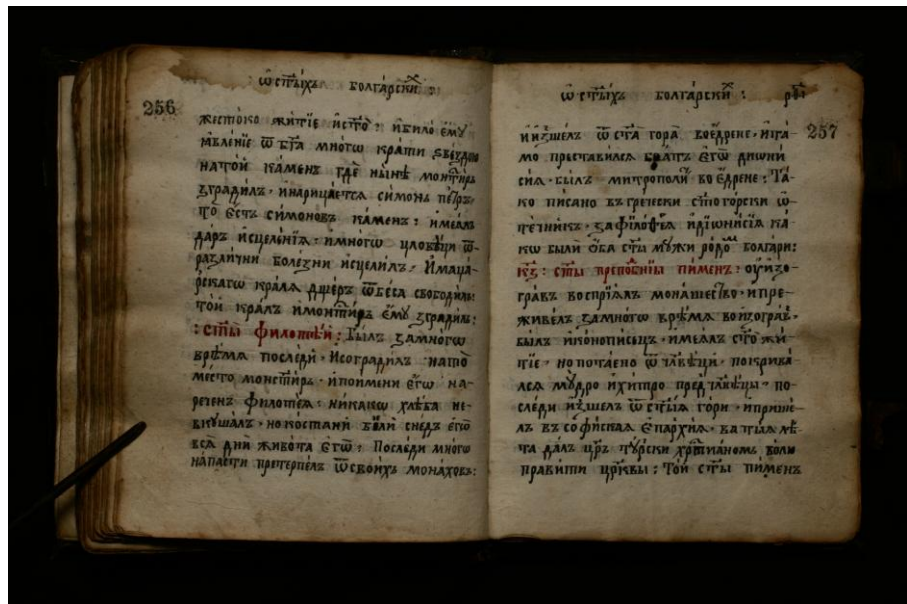 ѡ ст҃ыхъ болга́рскиⷯ :
256
жестоко житїе и сто҃ : и било ѐму
ꙗвленїе ѿ бг҃а многѡ крати ѕвездою
на то́й ка́менъ где нынѣ монⷭ҇тирь
зградилъ · и нарица́ется симонъ пе́тръ ·
то ѐсть си́моновъ ка́менъ : имеалъ
да́ръ исцеле́нїѧ : и многѡ цловѣци ѿ
разли́чни болезни исцелилъ · И маца́-
рскагѡ кра́лѧ дщеръ ѿ бѣса свободилъ :
то́й кра́лъ и монⷭ҇ти́рь ѐму зградилъ :
: ст҃ы филоѳе́й : Былъ за многѡ
врѣмѧ после́ди · И соградилъ на то̀
место монⷭ҇ти́рь · и по имени ѐгѡ на-
реченъ филоѳеѧ · никакѡ хлѣба не-
вкуша́лъ · но костани бѣли снедъ ѐгѡ
всѧ дни живо́та ѐгѡ : После́ди многѡ
на́пасти претерпелъ ѿ своихъ монаховъ :
ѡ ст҃ыхъ болга́рскиⷯ :
257
и изшелъ ѿ ста̀ гора̀ во едрене · и та-
мо преставилсѧ бра́тъ ѐгѡ диѡни
сиѧ · былъ митрополи́ во едрене : Та́-
ко писано въ гречески ст҃огорски ѡ-
течникъ · за филоѳеѧ и дїѡнисїѧ ка́-
кѡ были о́ба ст҃ы мꙋ́жи ро́доⷨ болгари :
к҃з : ст҃ы преподо́бнїы пи́менъ : оу́ изо-
графъ воспрїѧлъ мона́шество · и пре-
живелъ за многѡ врѣмѧ во изограⷴ ·
былъ иконописецъ · имеалъ ст҃о жи-
тїе · но потаено ѿ чл҃вѣци · покрива́-
лсѧ мꙋ́дро и хитро пред чл҃вѣцы · по-
следи изшелъ ѿ ст҃ыѧ гори · и прише-
лъ въ софи́йскаѧ ѐпархиѧ · ва тїаѧ лѣ-
та да́лъ цр҃ъ тꙋ́рски хрⷭ҇тїаномъ волю
правити црⷦ҇вы : То́й ст҃ы пи́менъ